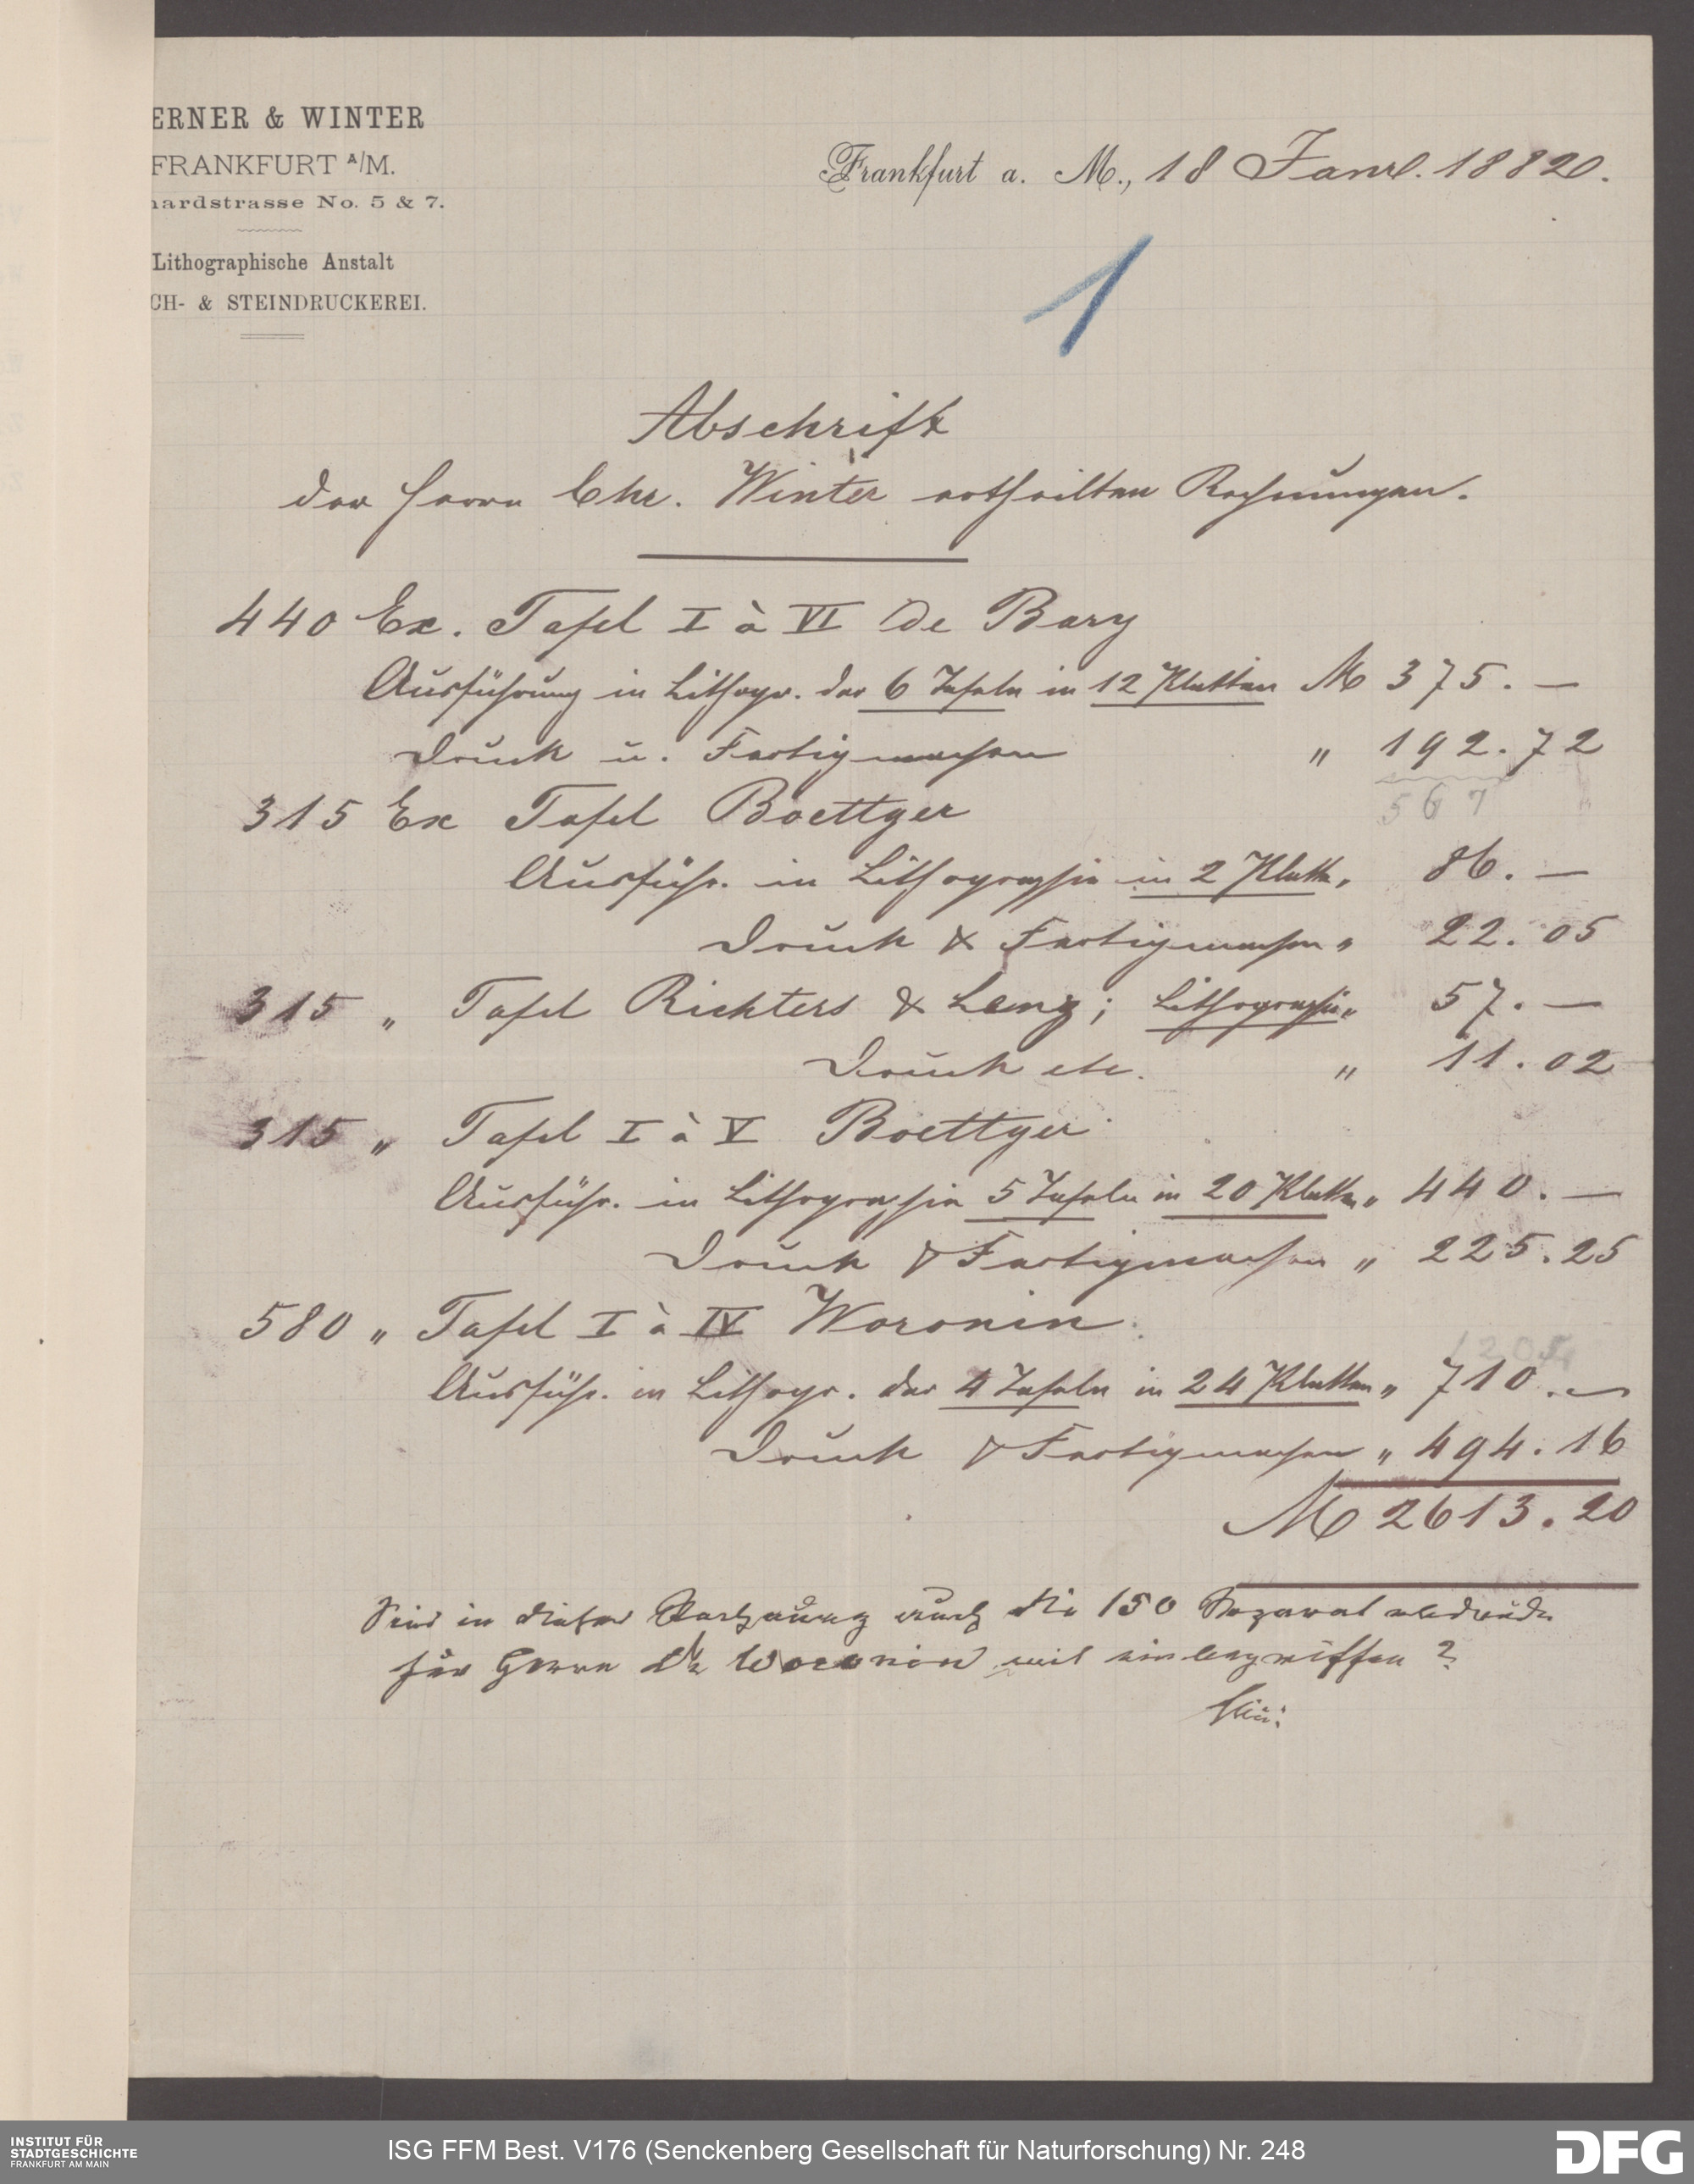 ERNER & WINTER
FRANKFURT A/M.
hardstrasse No. 5 & 7.
Lithographische Anstalt
CH- & STEINDRUCKEREI.
Frankfurt a. M., 18 Janr. 1882.
1
Abschrift
der Herrn Chr. Winter ertheilten Rechnungen.
440 Ex. Tafel I à VI De Bary
Ausführung in Lithogr. der 6 Tafeln in 12 Platten M 375. —
Druck u. Fertigmachen " 192.72
567
315 Ex Tafel Boettger
Ausführ. in Lithographie in 2 Platten " 86. —
Druck & Fertigmachen " 22.05
315 " Tafel Richters & Lenz; Lithographie " 57. —
Druck etc. " 11.02
315 " Tafel I à V Boettger
Ausführ. in Lithographie 5 Tafeln in 20 Platten " 440. —
Druck & Fertigmachen " 225.25
580 " Tafel I à IV Woronin
1204
Ausführ. in Lithogr. der 4 Tafeln in 24 Platten " 710. —
Druck & Fertigmachen " 494.16
M 2613.20
Sind in dieser Rechnung auch die 150 Separatabdrücke
für Herrn Dr Woronin mit einbegriffen?
INSTITUT FÜR
STADTGESCHICHTE
FRANKFURT AM MAIN
ISG FFM Best. V176 (Senckenberg Gesellschaft für Naturforschung) Nr. 248
DFG